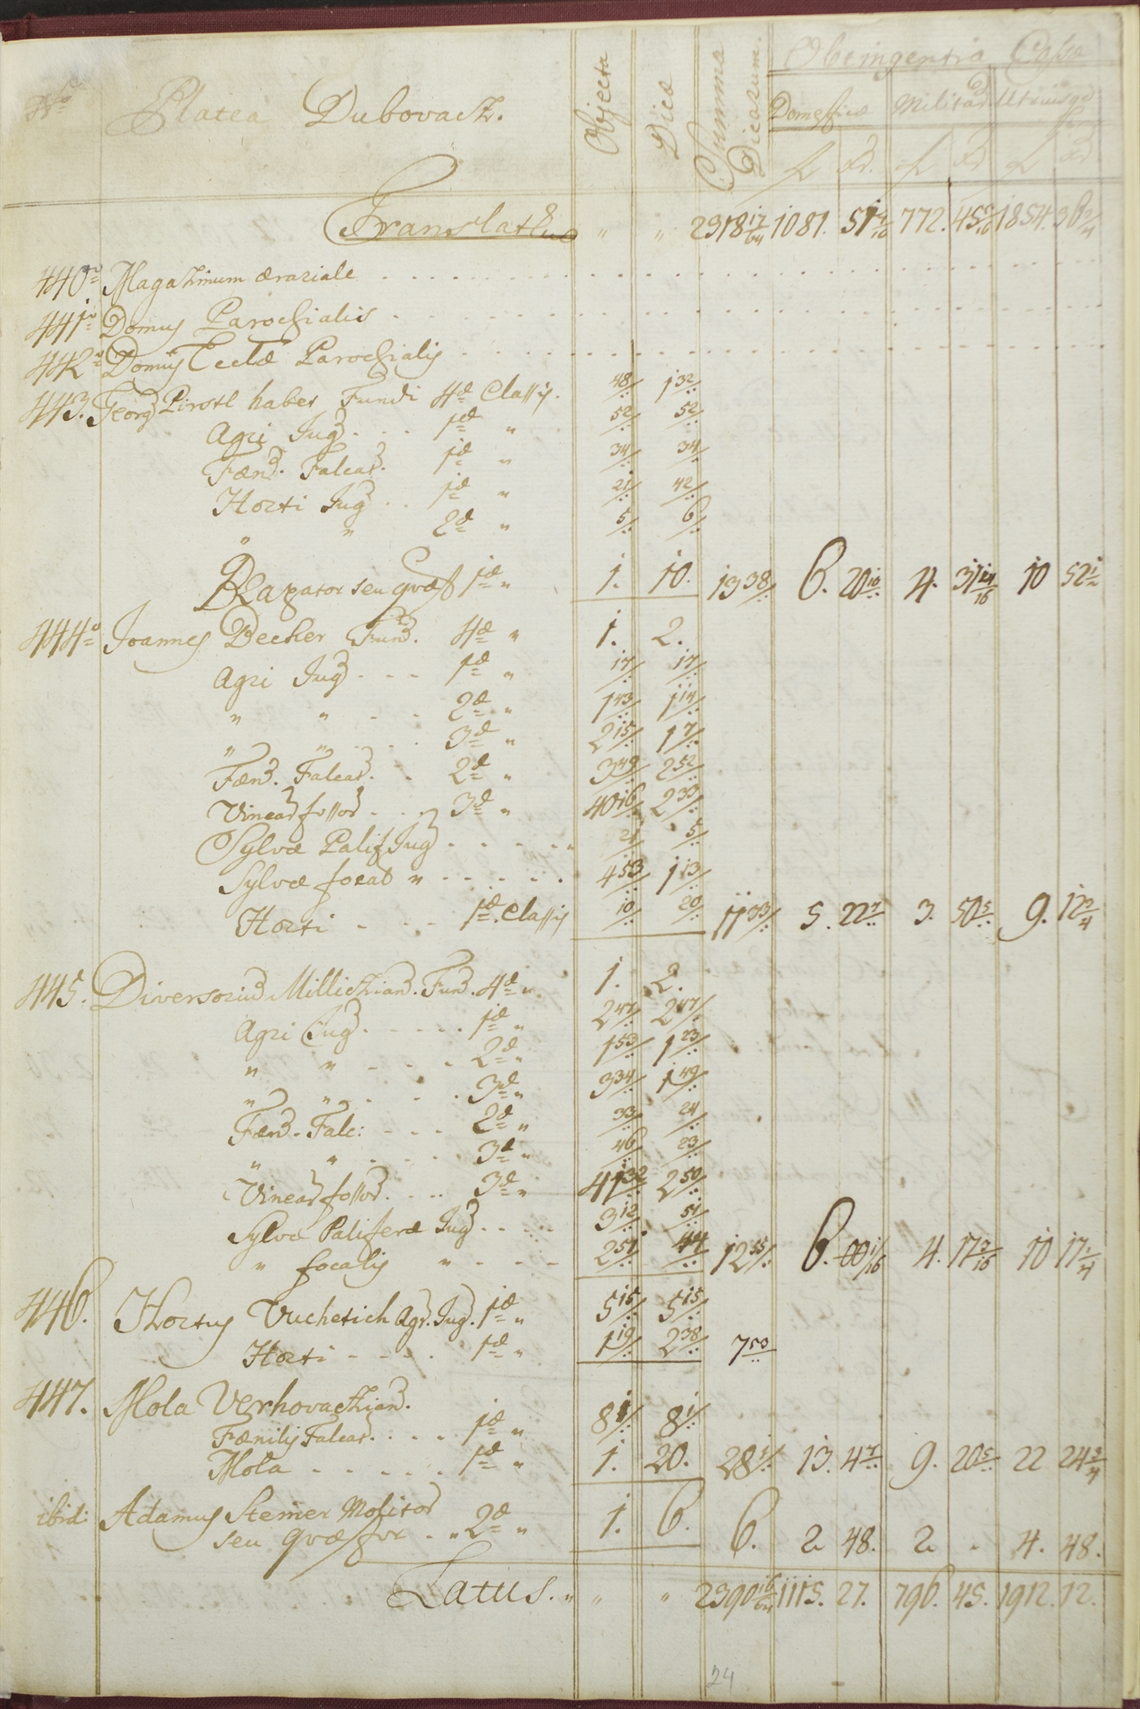 Nro Platea Dubovacz. Objecta Dicæ Summa Dicarum. Obtingentia Cassa
Domestica Militar. Utriusq
f xr. f xr. f xr.
Translatum " " 2378 17/64 1081. 51 4/16 772. 45 5/16 1854. 36 2/4
440º Magazinum ærariale
441º Domus Parochialis
442º Domus Eccle Parochialis
443. Georg Pirstl habet Fundi 4æ Classis. 48/ 1 32/
Agri Jug 1æ " 52/ 52/
Fæn. Falcat. 1æ " 34/ 34/
Horti Jug 1æ " 21/ 42/
" " 2æ " 5/ 6/
seu quæst 1æ " 1. 10. 13 38/ 6. 20 10 4. 31 14/16 10 52 1/
444º Joannes Becher Fund. 4æ " 1. 2.
Agri Jug 1æ " 17/ 17/
" " 2æ " 1 43/ 1 14/
" " 3æ " 2 15/ 1 7/
Fæn. Falcat. 2æ " 3 49/ 2 52/
Vinear fossor 3æ " 40 16/ 2 33/
Sylvæ Palif Jug " 21/ 5/
Sylvæ focal " 4 53/ 1 13/
Horti 1æ Classis 10/ 20/ 11 33/ 5. 22 7/ 3. 50 5/ 9. 12 3/4
445. Diversoriu Millichian. Fund. 4æ " 1. 2.
Agri Jug 1æ " 2 47/ 2 47/
" " 2æ " 1 53/ 1 23/
" " 3æ " 3 34/ 1 49/
Fæn. Falc: 2æ " 33/ 24/
" " 3æ " 46/ 23/
Vinear fossor 3æ " 41 32/ 2 50/
Sylvæ Paliferæ Jug 3 12/ 51/
" focalis " 2 51/ 44/ 12 55/ 6. 00 1/16 4. 17 3/16 10 17 1/4
446. Hortus Vuchetich Agr. Jug. 1æ " 5 15/ 5 15/
Horti 1æ " 1 19/ 2 38/ 7 53
447. Mola Verhovachian.
Fænilis Falcat. 1æ " 8 1/ 8 1/
Mola 1æ " 1. 20. 28 1/ 13. 4 7/ 9. 20 5/ 22 24 3/4
ibid: Adamus Steiner Molitor
seu quæstor " 2æ " 1. 6. 6. 2 48. 2 . 4. 48.
Latus. " " " 2390 16/64 1115. 27. 796. 45. 1912. 12.
24